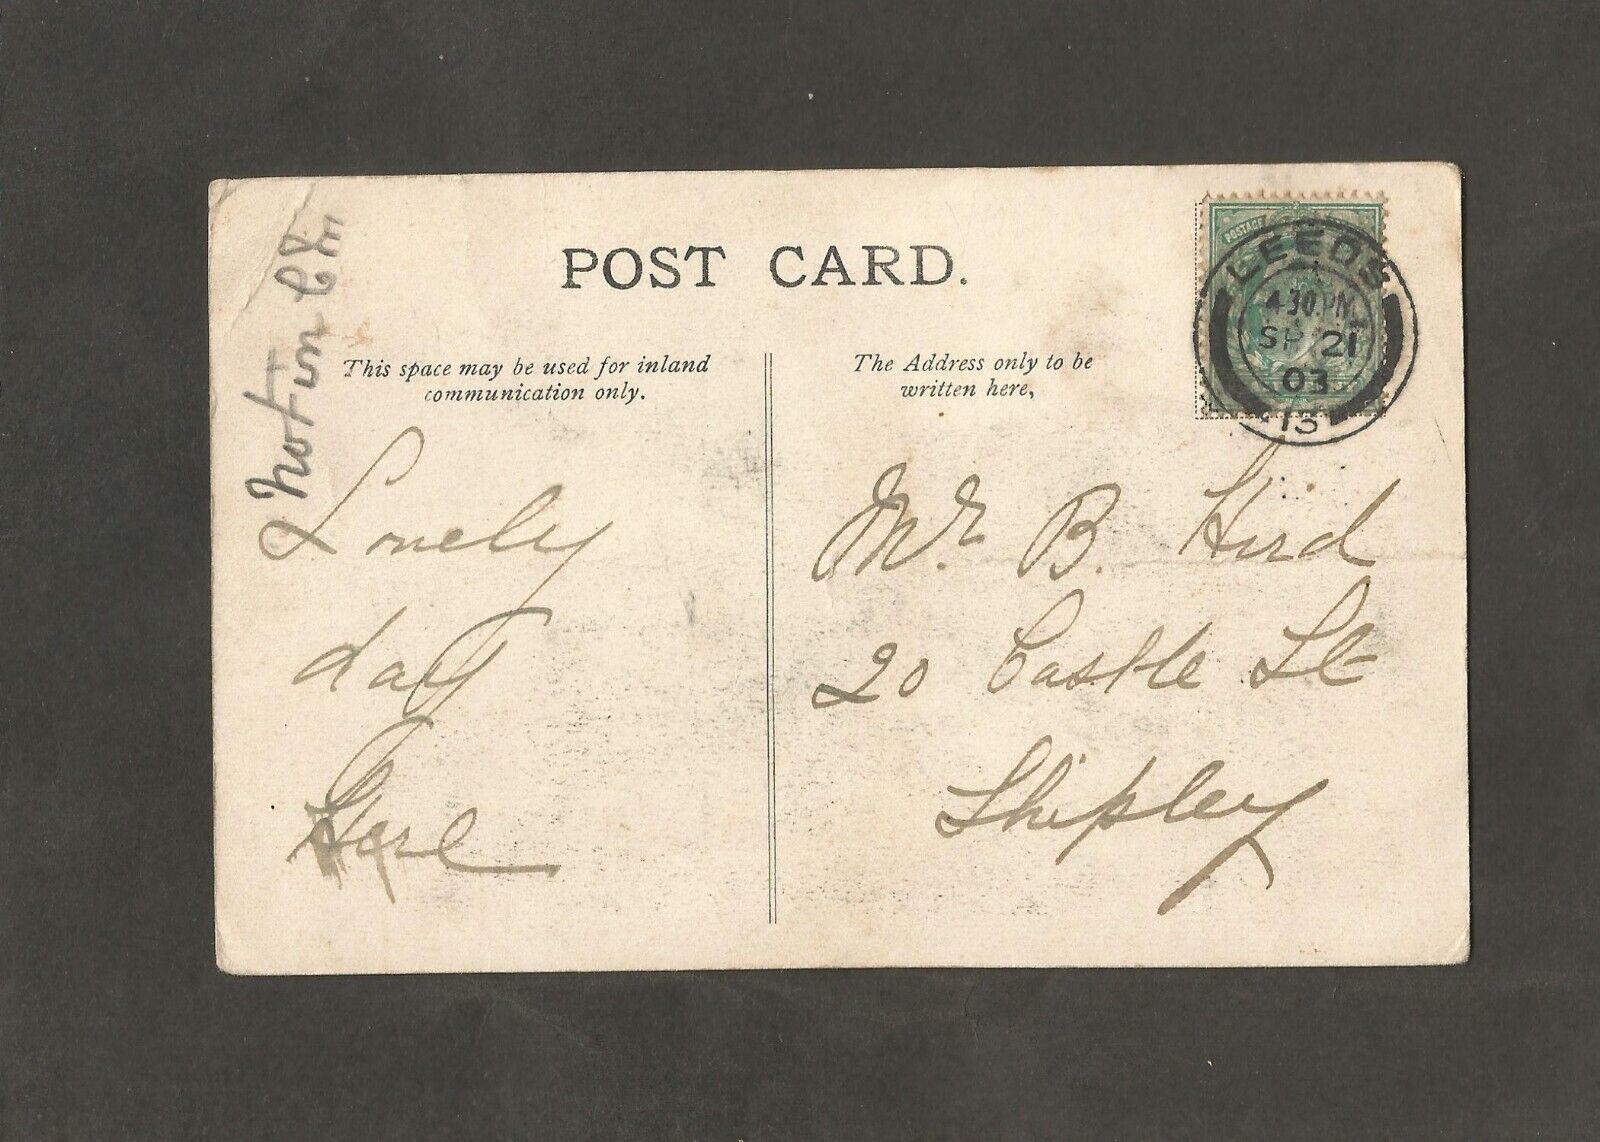 POST CARD.
This space may be used for inland
communication only.
The Address only to be
written here,
POSTAGE
LEEDS
4.30.PM
SP 21
03
13
not in
Lovely
day
Here
Mr. B. Hird
20 Castle St
Shipley